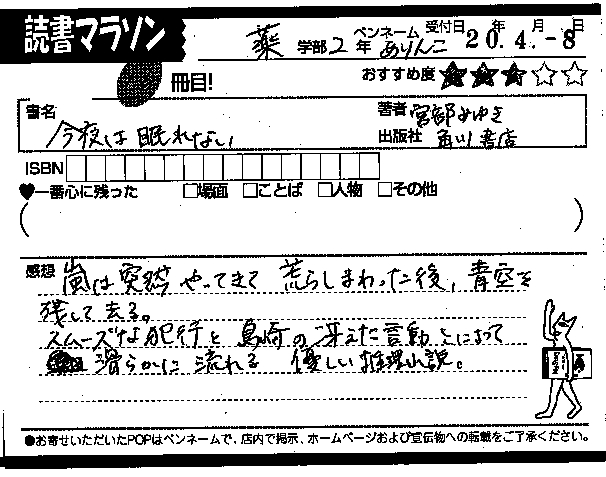 読書マラソン
薬 学部 2 年 ペンネーム ありんこ 受付日 20年 4月 -8日
冊目!
おすすめ度 ★★★☆☆
書名 今夜は眠れない
著者 宮部みゆき
出版社 角川書店
ISBN
♥一番心に残った □場面 □ことば □人物 □その他
( )
感想 嵐は突然やってきて荒らしまわった後、青空を
残して去る。
スムーズな犯行と島崎の冴えた言動とによって
滑らかに流れる 優しい推理小説。
●お寄せいただいたPOPはペンネームで、店内で掲示、ホームページおよび宣伝物への転載をご了承ください。